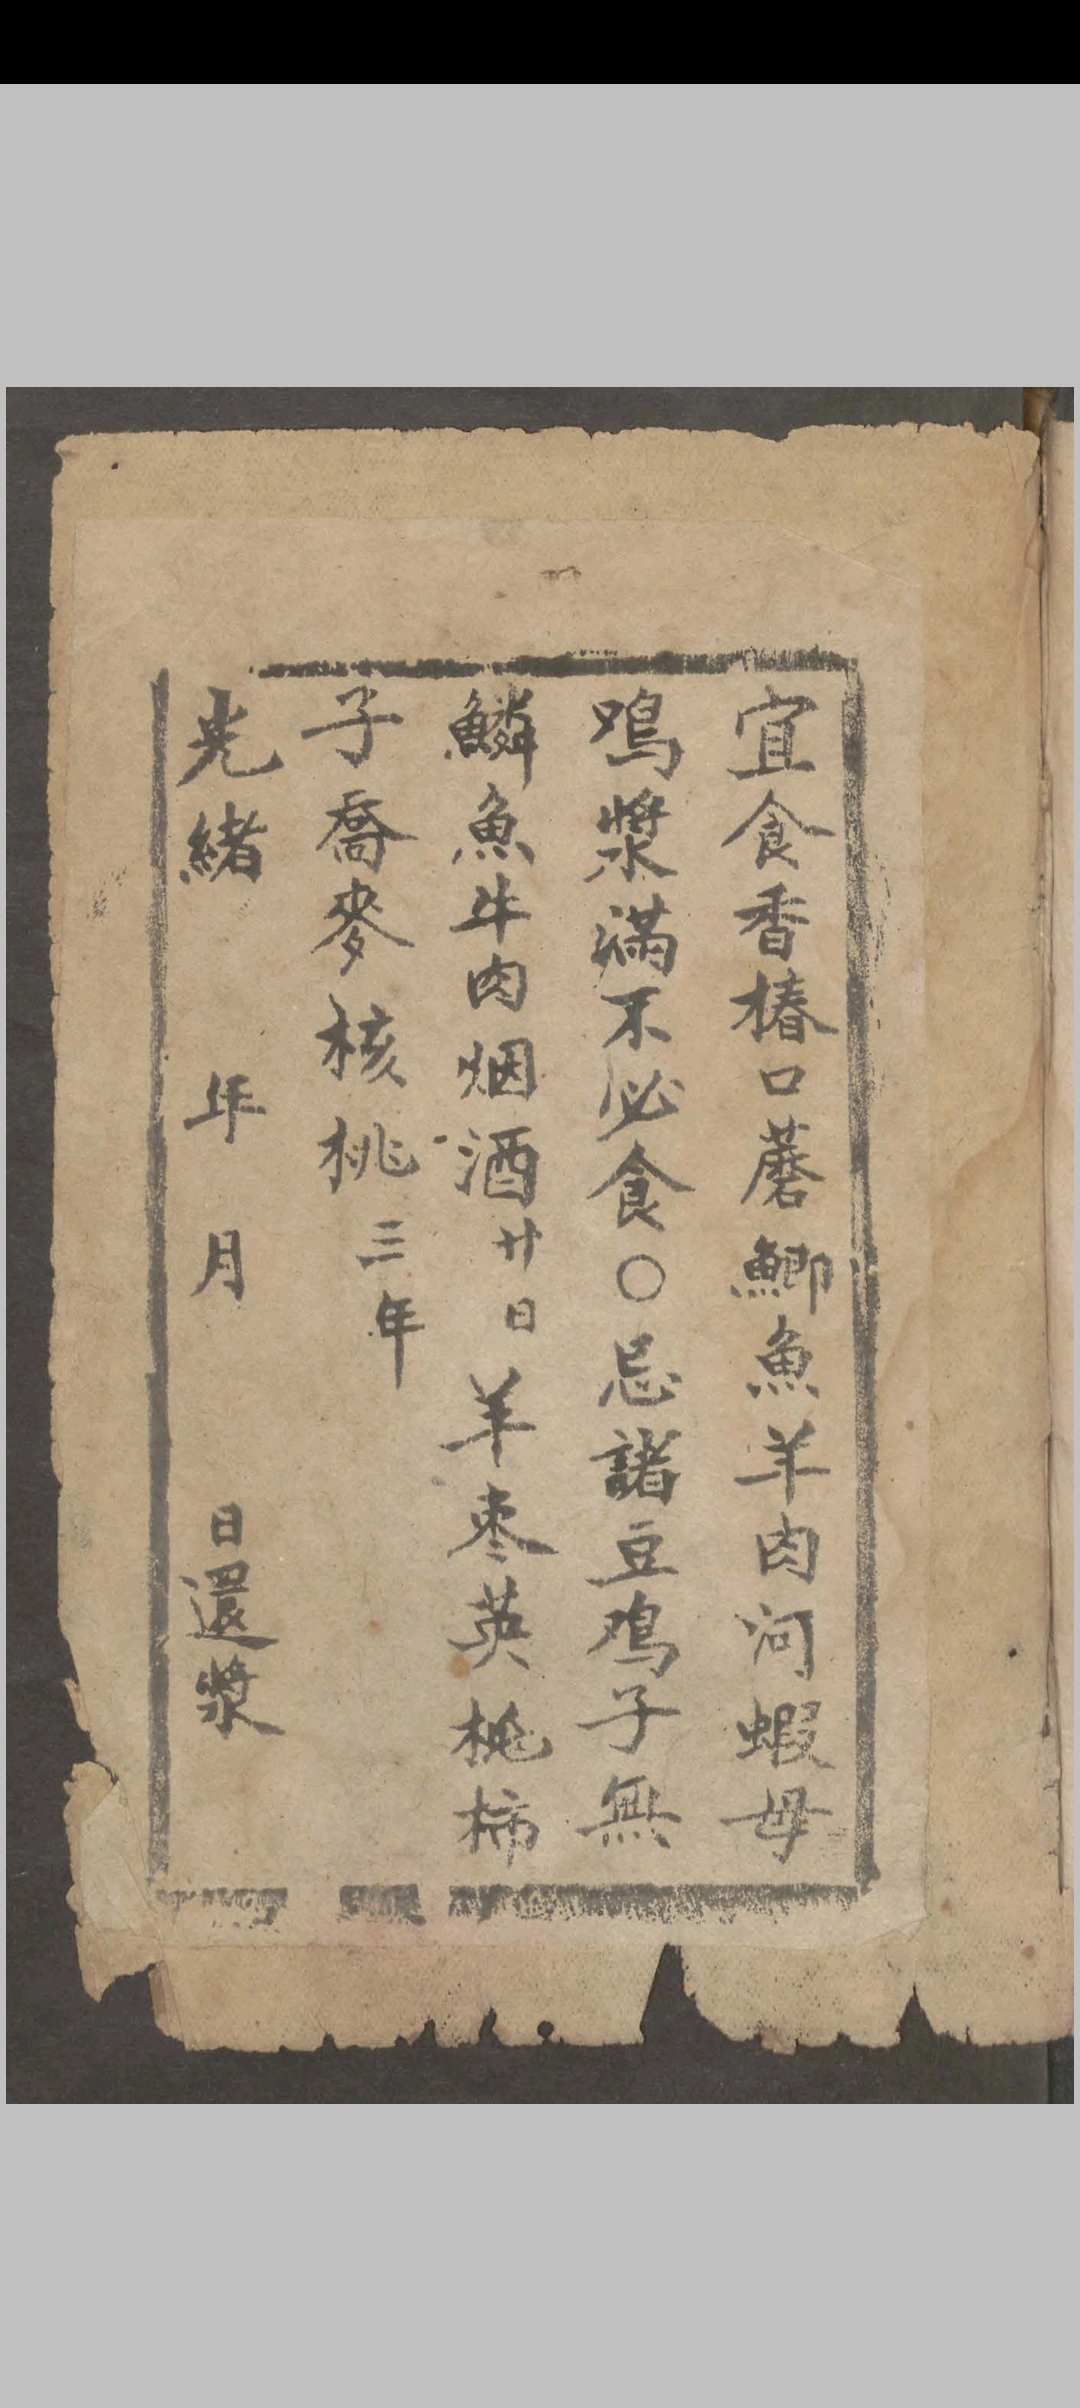 宜食香椿口蘑鯽魚羊肉河蝦母
鸡漿滿不必食〇忌諸豆鸡子無
鱗魚牛肉烟酒廿日羊枣英桃柿
子喬麥核桃三年
光緒 年 月 日還漿